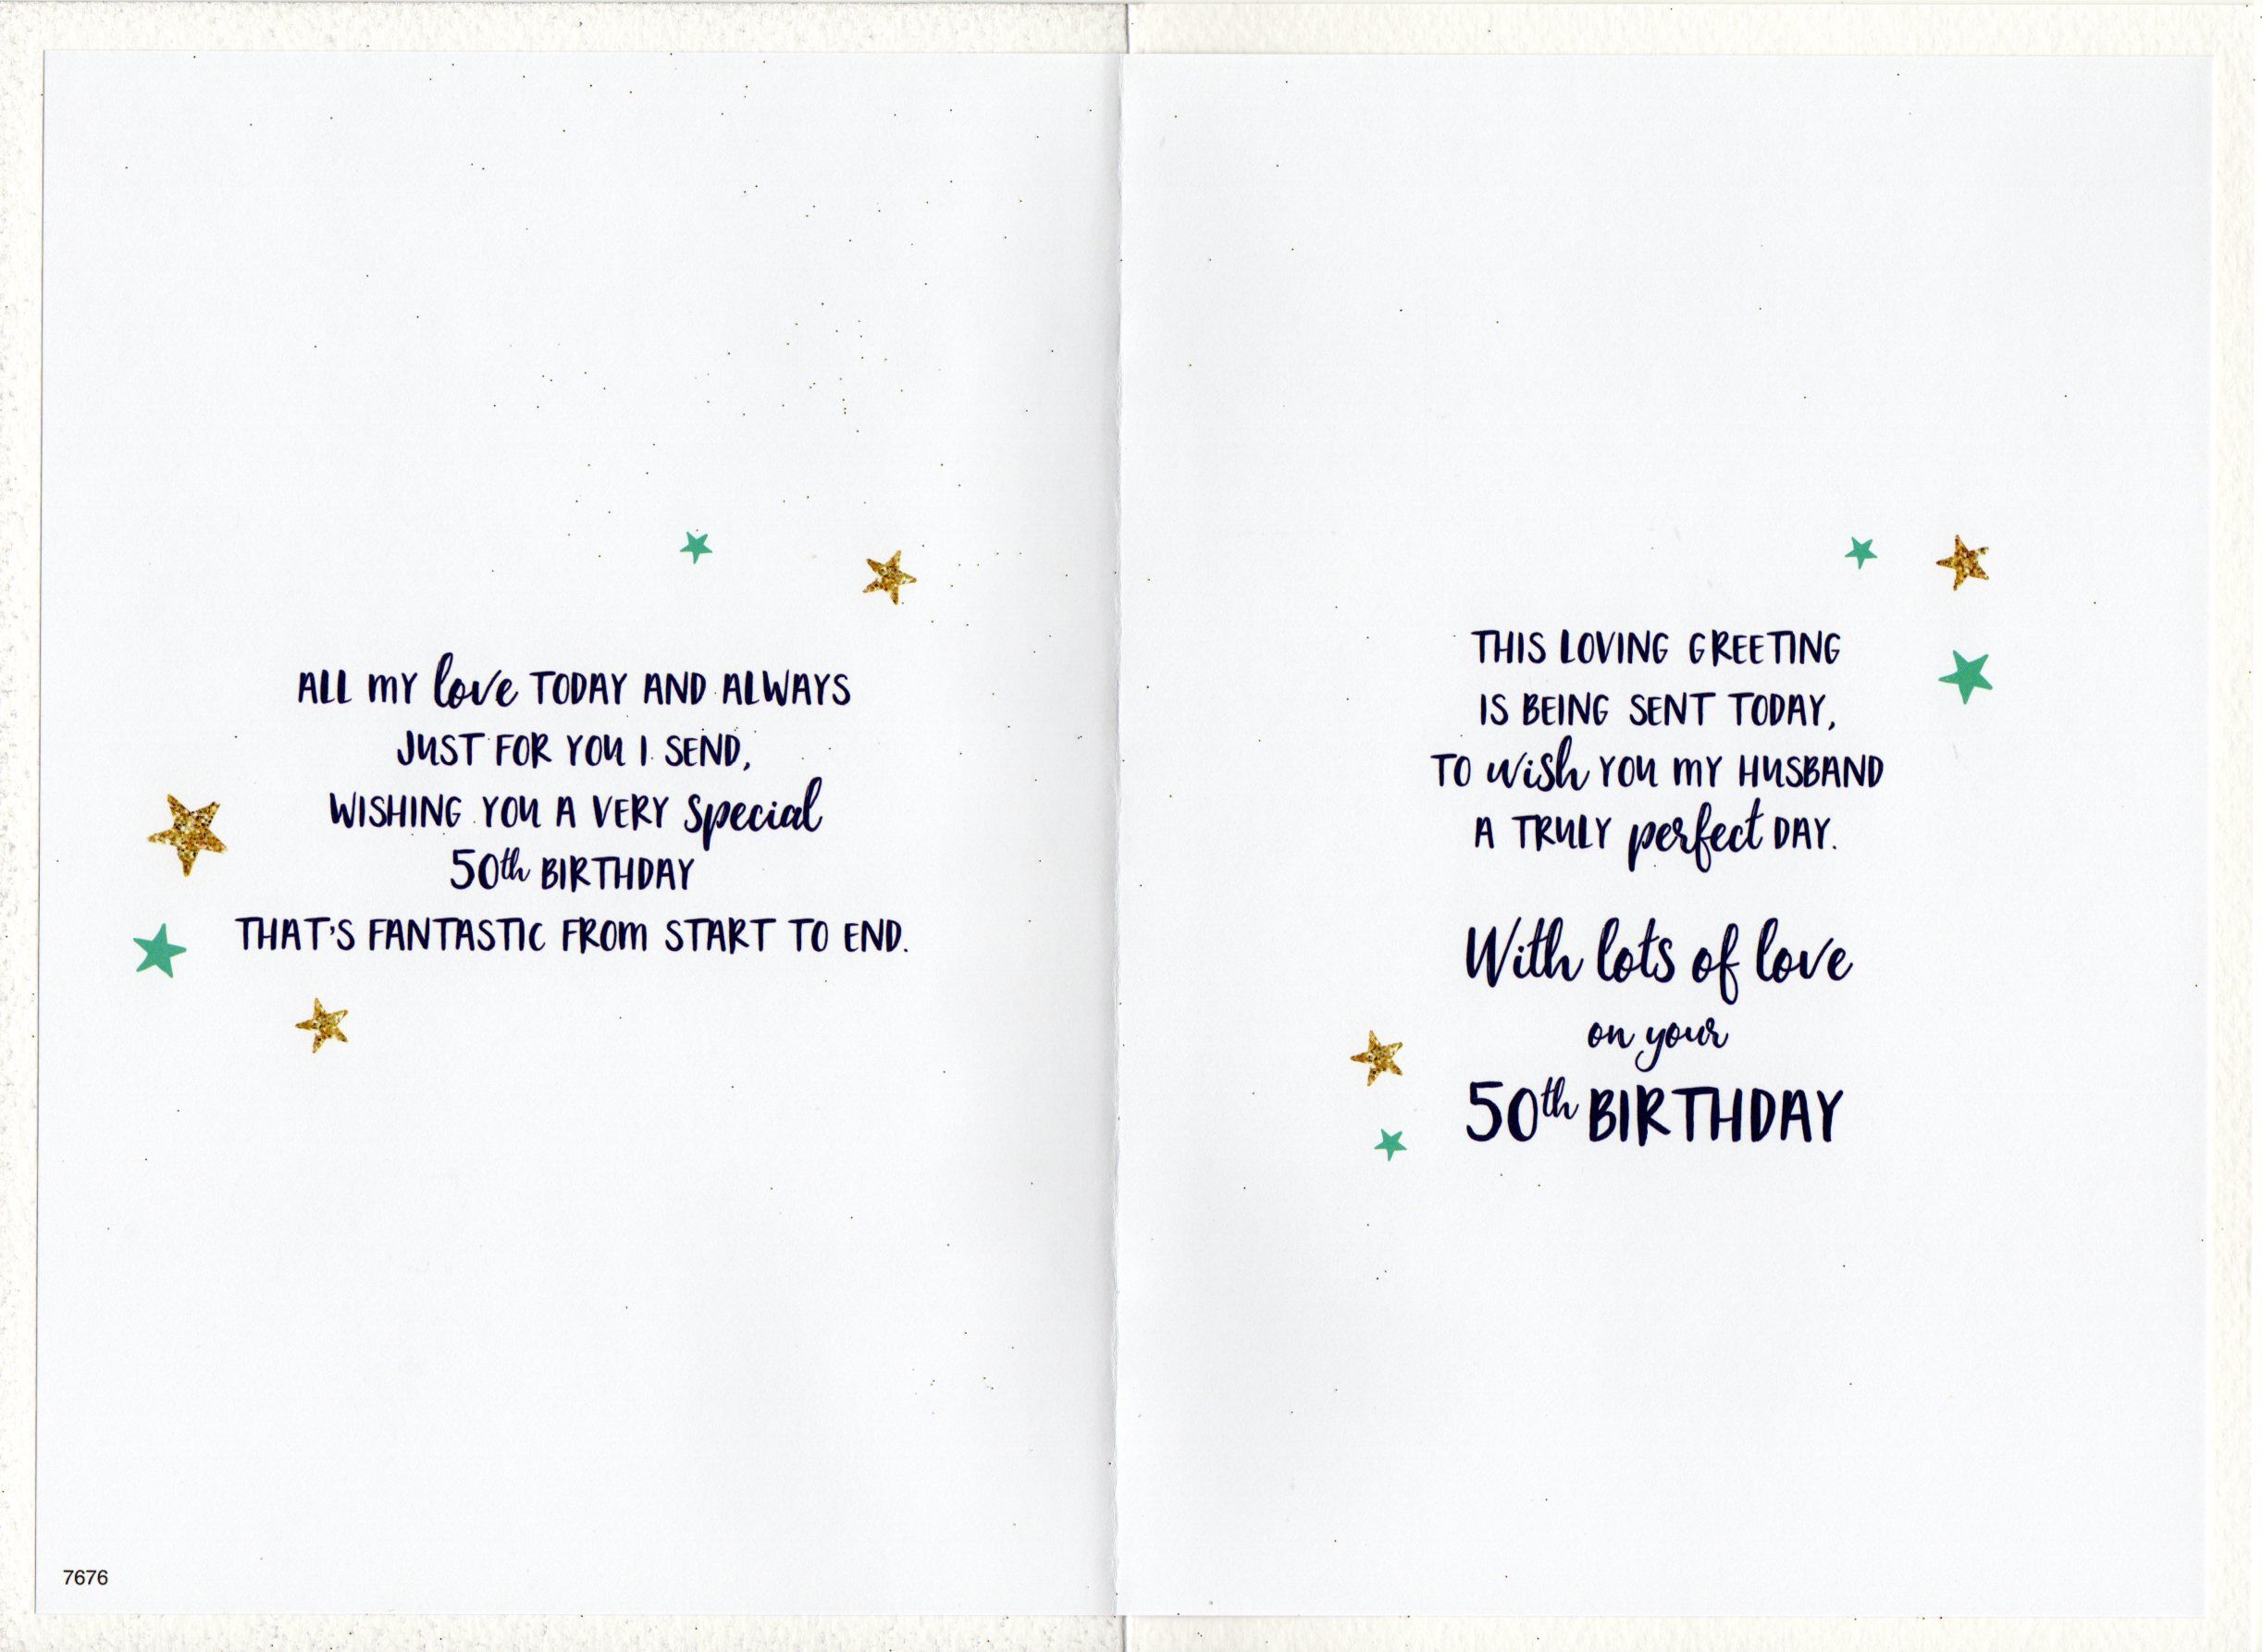 ALL MY love TODAY AND ALWAYS
JUST FOR YOU I SEND,
WISHING YOU A VERY Special
50th BIRTHDAY
THAT'S FANTASTIC FROM START TO END.
7676
THIS LOVING GREETING
IS BEING SENT TODAY,
TO wish YOU MY HUSBAND
A TRULY perfect DAY.
With lots of love
on your
50th BIRTHDAY